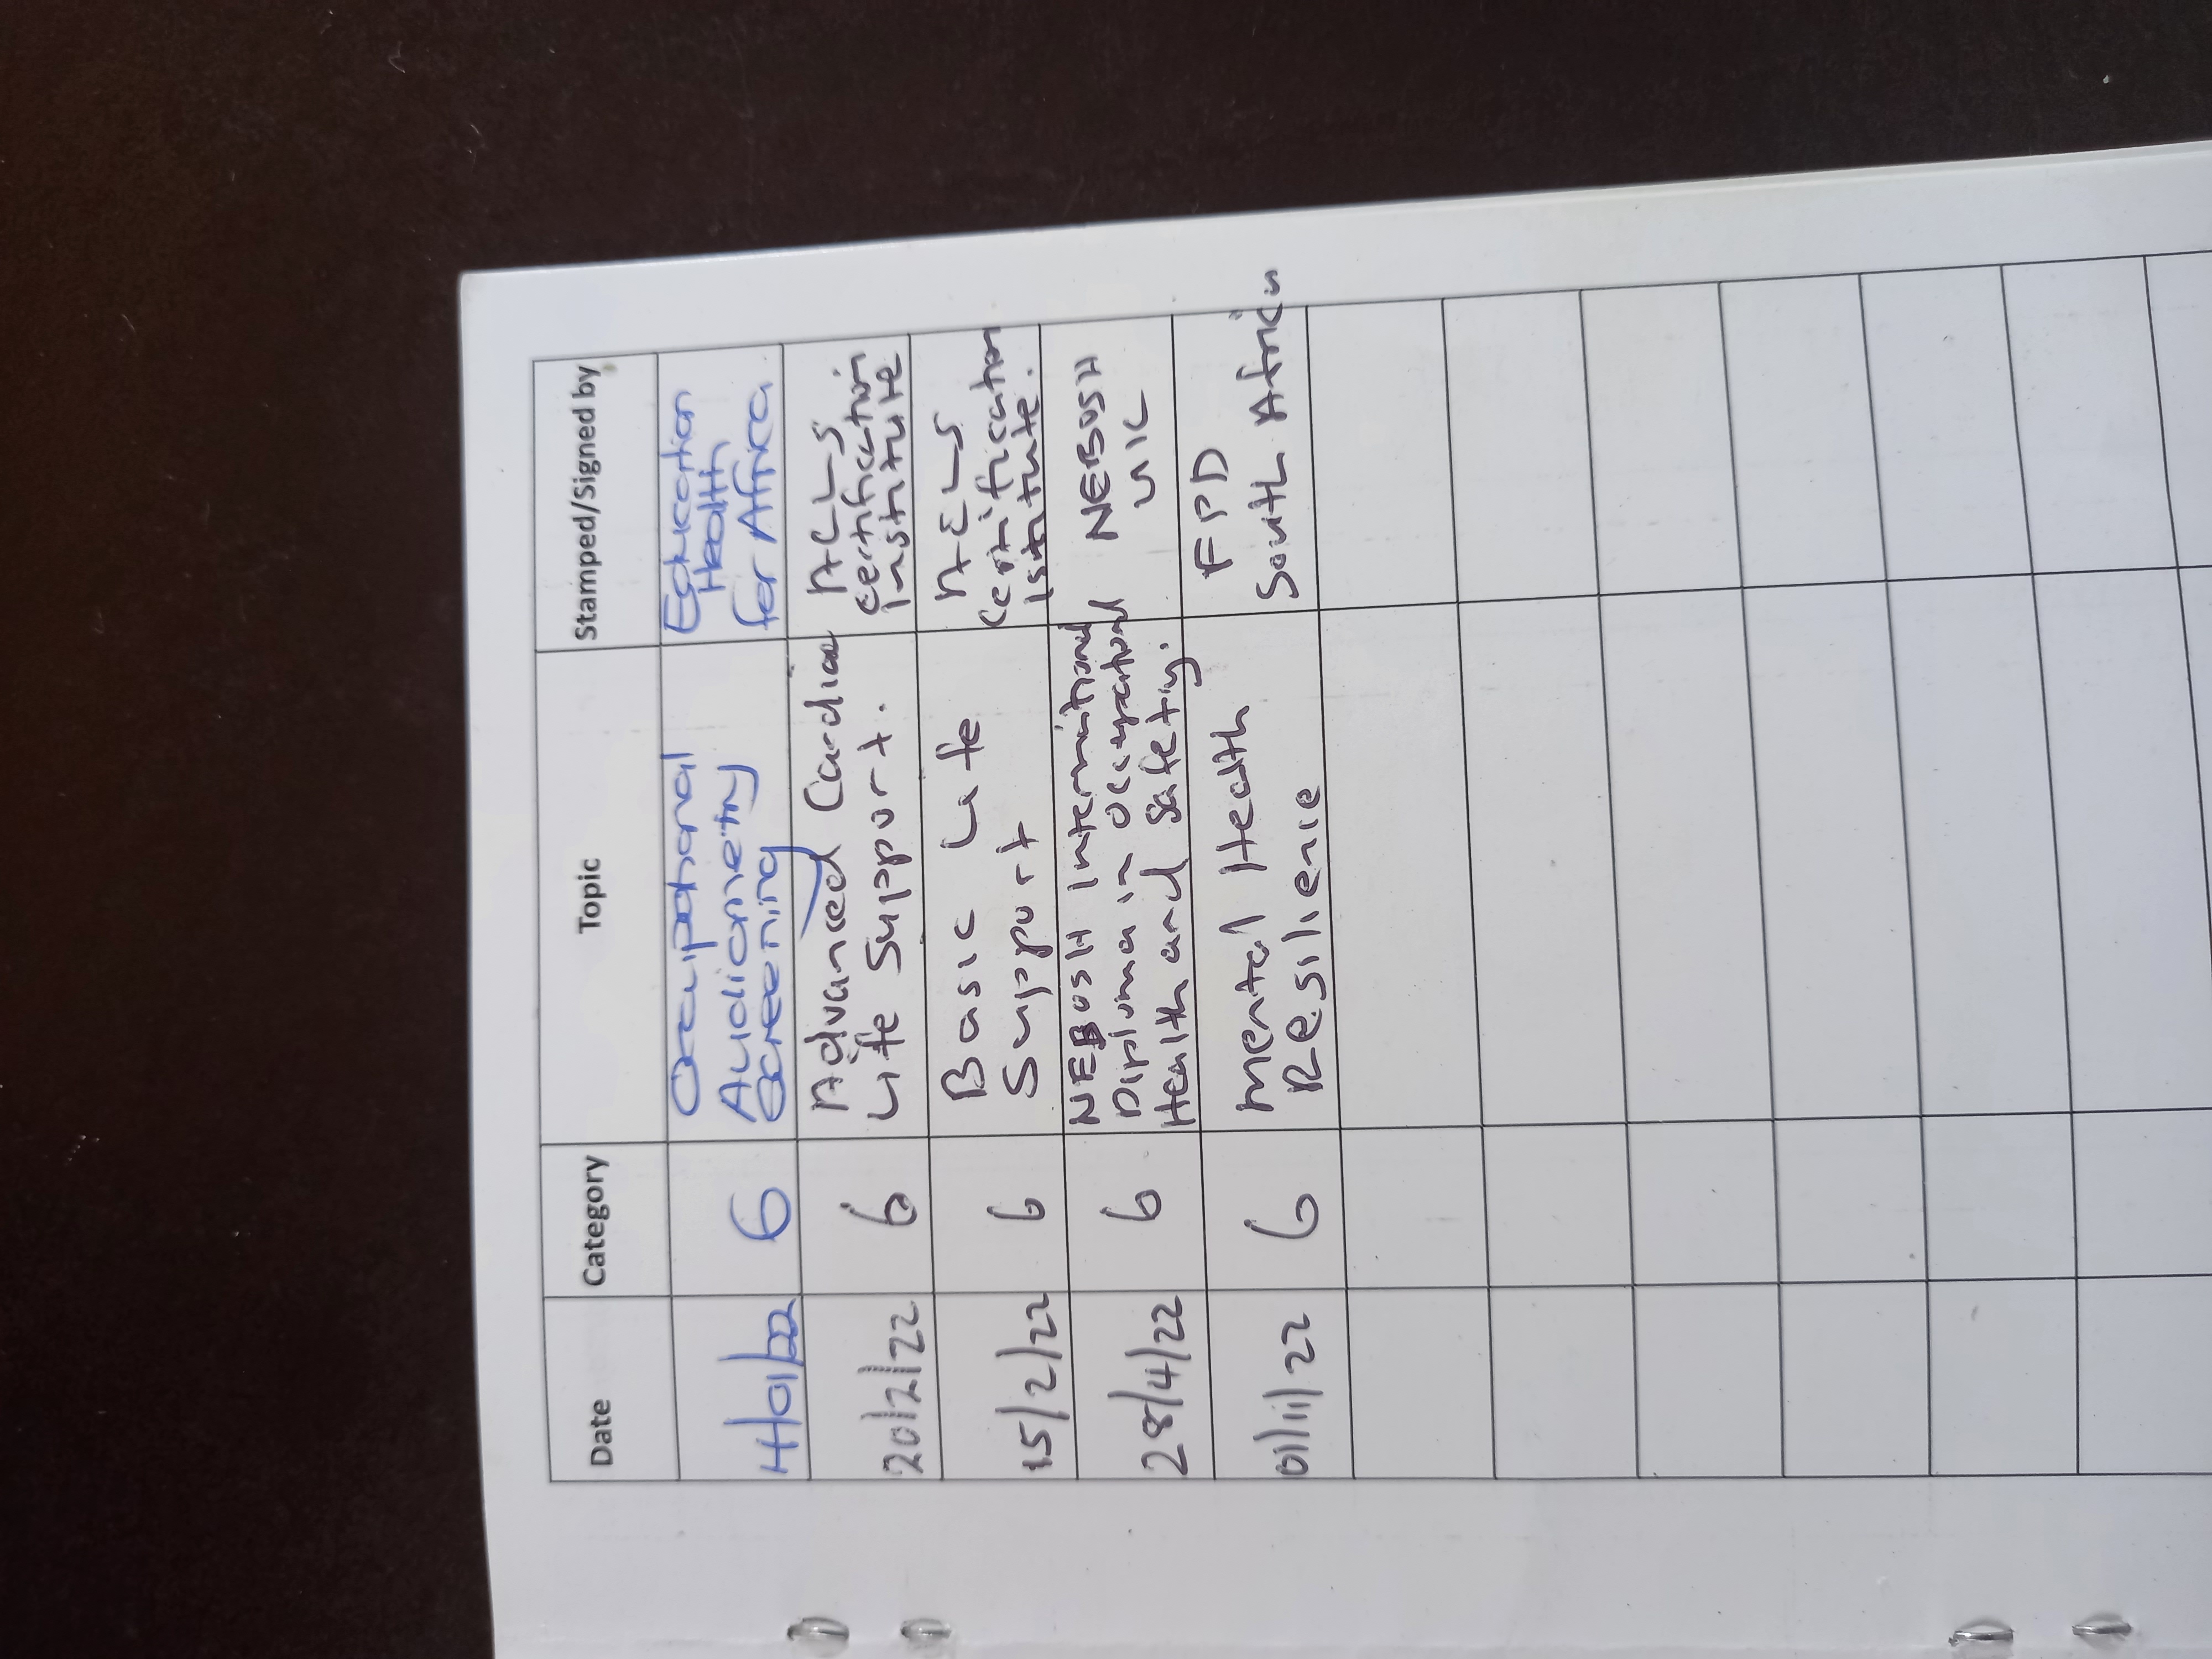 Date Category Topic Stamped/Signed by
Occupational
Audiometry
Screening
Education
Health
for Africa
6
20/2/22
6
Advanced Cardiac
Life Support.
ACLS
certification
Institute
15/2/22
6
Basic Life
Support
ACLS
Certification
Istitute.
28/4/22
6
NEBOSH International
Diploma in Occupational
Health and Safety.
NEBOSH
UK
01/11/22
6
Mental Health
Resilience
FPD
South Africa